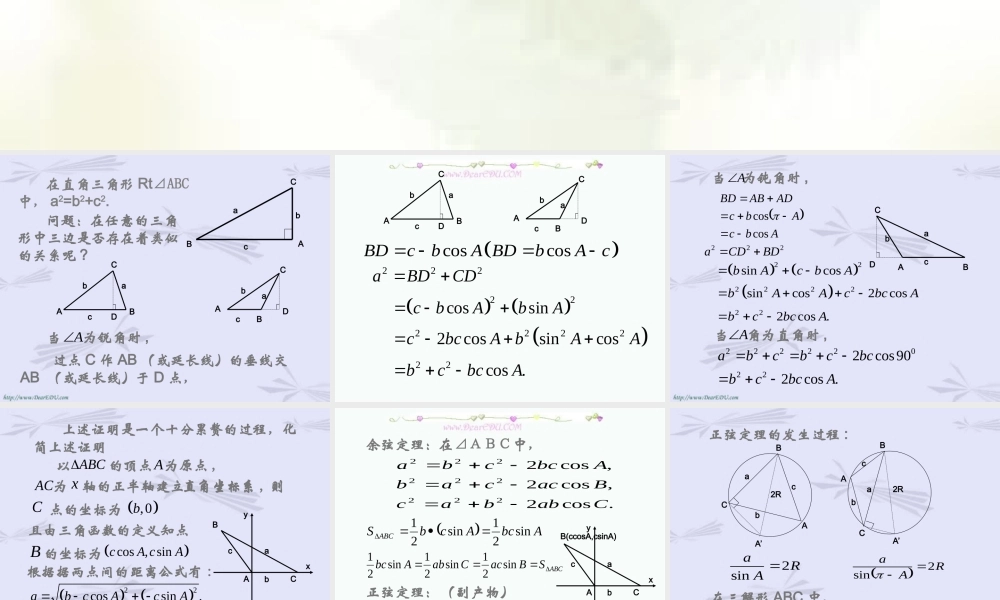 在直角三角形 Rt⊿ABC
中， a²=b²+c².
问题：在任意的三角
形中三边是否存在着类似
的关系呢？
C
a
b
B
c
A
C
b
a
A
c
D
B
C
b
a
A
c
B
D
当∠A为锐角时，
过点 C 作 AB （或延长线）的垂线交
AB （或延长线）于 D 点，
http://www.DearEDU.com
www.DearEDU.com
C
b
a
A
c
D
B
C
b
a
A
c
B
D
BD =c - b cos A(BD =b cos A - c)
a² =BD² +CD²
=(c - b cos A)² +(b sin A)²
=c² - 2bc cos A +b²(sin² A +cos² A)
=b² +c² - bc cos A.
当∠A为钝角时，
BD =AB +AD
=c +b cos(π - A)
=c - b cos A
a² =CD² +BD²
=(b sin A)² +(c - b cos A)²
=b²(sin² A +cos² A) +c² - 2bc cos A
=b² +c² - 2bc cos A.
C
a
b
D
A
c
B
当∠A角为直角时，
a² =b² +c² =b² +c² - 2bc cos 90⁰
=b² +c² - 2bc cos A.
http://www.DearEDU.com
上述证明是一个十分累赘的过程，化
简上述证明
以ΔABC 的顶点A为原点，
AC为 x 轴的正半轴建立直角坐标系，则
C 点的坐标为 (b,0)
且由三角函数的定义知点
B 的坐标为 (c cos A, c sin A)
根据据两点间的距离公式有：
a =√(b - c cos A)² +(- c sin A)² .
y
B
c
a
x
A
b
C
www.DearEDU.com
余弦定理：在⊿ A B C 中，
a² =b² +c² - 2bc cos A,
b² =a² +c² - 2ac cos B,
c² =a² +b² - 2ab cos C.
S_ΔABC =1/2 b•(c sin A) =1/2 bc sin A
1/2 bc sin A =1/2 ab sin C =1/2 ac sin B =S_ΔABC
正弦定理：（副产物）
y
B(ccosA,csinA)
c
a
x
A
b
C
正弦定理的发生过程：
B
a
c
2R
C
b
A
A'
B
c
A
a
2R
b
C
A'
a/sin A =2R
a/sin(π - A) =2R
在三解形 ABC 中，